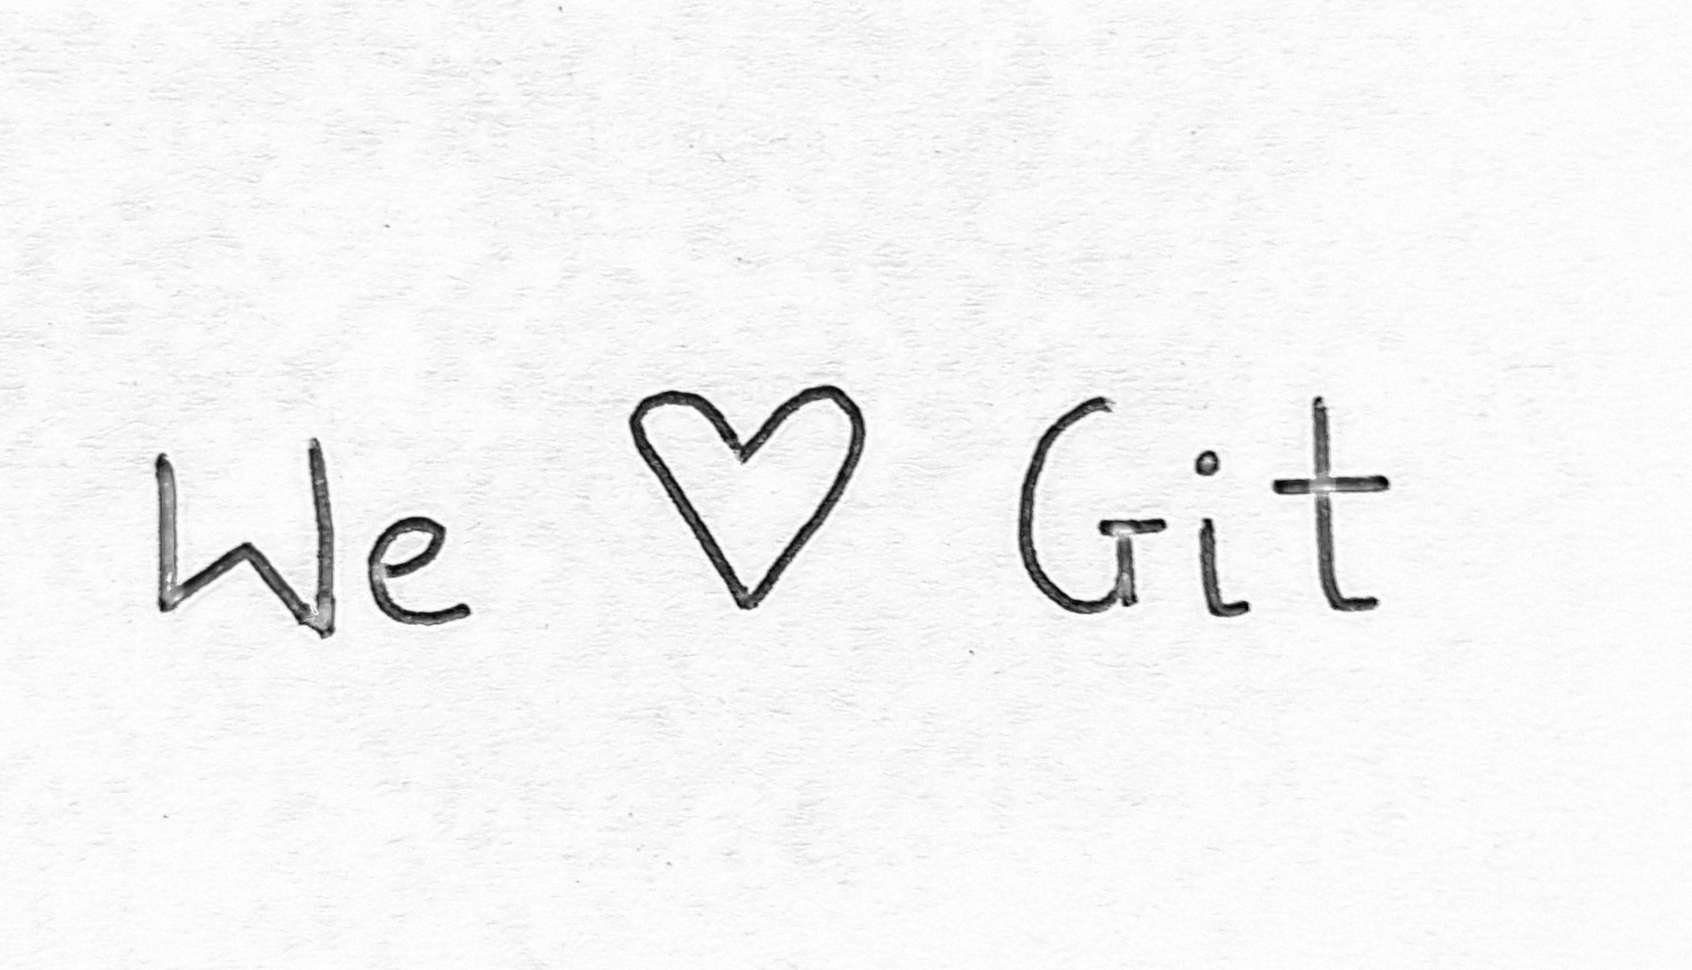 We ♡ Git